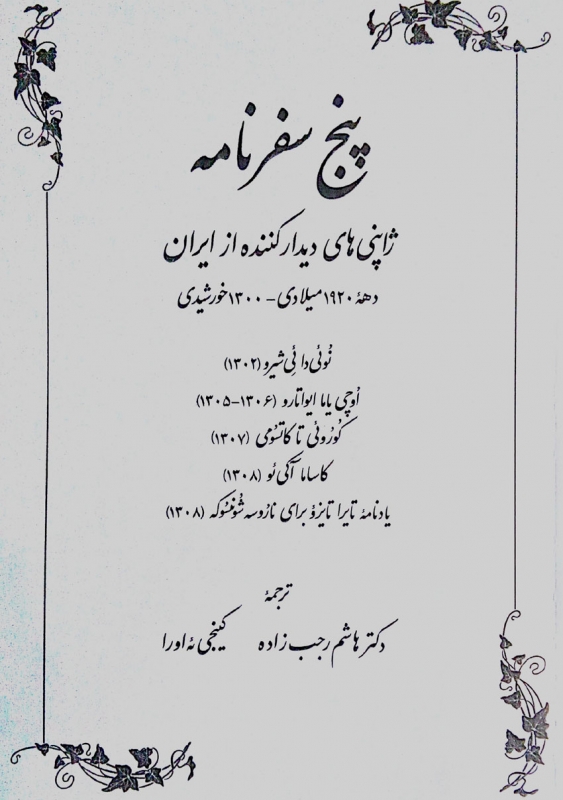 پنج سفرنامه
ژاپنی‌های دیدارکننده از ایران
دههٔ ۱۹۲۰ میلادی - ۱۳۰۰ خورشیدی
نُوئی دائی‌شیرو (۱۳۰۲)
اُوچی یاما ایواتارو (۱۳۰۶-۱۳۰۵)
کُورُوئی تا کاتسُومی (۱۳۰۷)
کاساما آکی‌ئو (۱۳۰۸)
یادنامهٔ تایرا تایزوُ برای نارُوسه شُونسُوکه (۱۳۰۸)
ترجمهٔ
دکتر هاشم رجب‌زاده کینجی ئه‌اورا